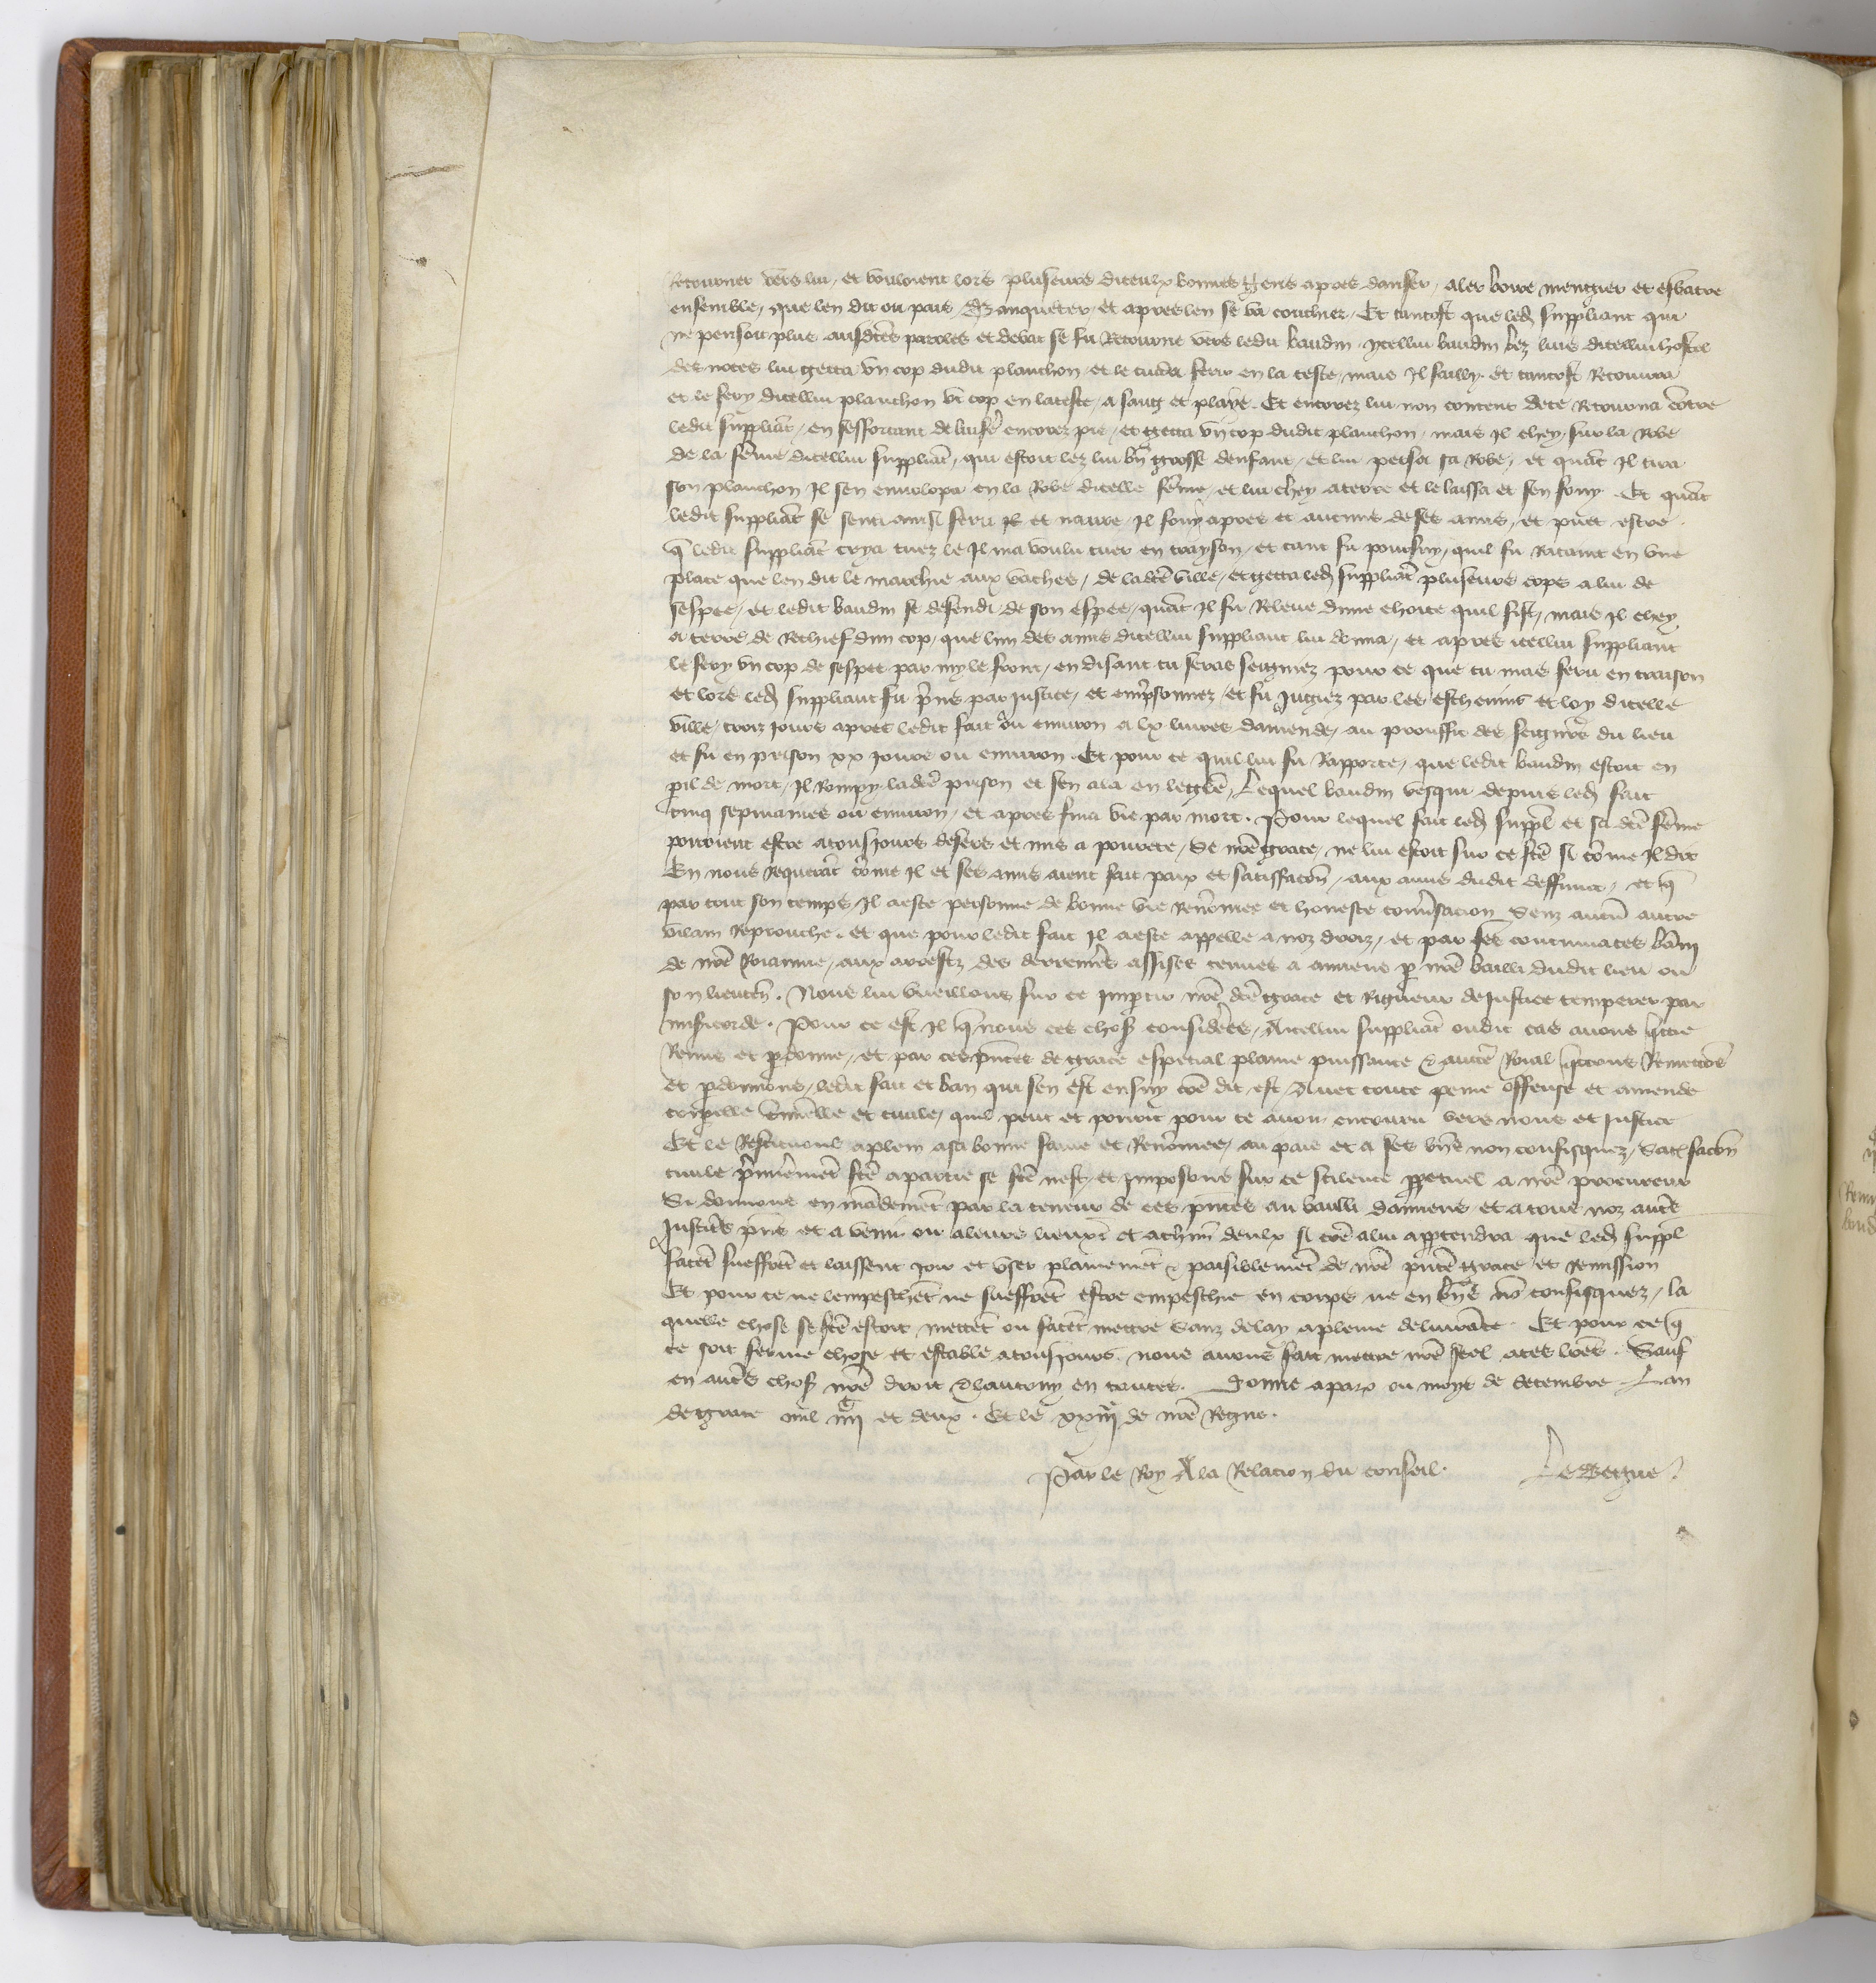 Retourner vers lui, et vouloient lors pluseurs diceulx bonnes gens apres danser, aler boire mengier et esbatre
ensemble, que len dit ou pais Banqueter, et apres len se va couchier. Et tantost que led suppliant qui
ne pensoit plus ausdces paroles et debat se fu Retourne vers ledit baudin ycellui baudin lez luis dicellui hostel
des notes lui getta un cop dudit planchon et le cuida ferir en la teste, mais Il failly. et tantost Retourna
et le fery dicellui planchon un cop en lateste, a sang et playe. Et encorez lui non content de ce Retourna contre
ledit suppliat, en sefforcant de lui fe encorez pis, et getta un cop dudit planchon, mais Il chey sur la Robe
de la feme dicellui suppliat, qui estoit lez lui bn grosse denfant, et lui persa sa Robe, et quat Il tira
son planchon Il sen envelopa en la Robe dicelle feme, et lui chey aterre et le laissa et sen fouy Et quat
ledit suppliat se senti ainsi feru et navre, Il fouy apres et aucuns de ses amis, et puet estre
q ledit suppliat crya tuez le Il ma voulu tuer en trayson, et tant fu poursuy, quil fu Rataint en une
place que len dit le marchie aux vaches, de ladce ville, et getta led suppliat pluseurs cops a lui de
sespee, et ledit baudin se defendi de son espee, quat Il fu Releve dune choite quil fist, mais Il chey
a terre de Rechief dun cop, que lun des amis dicellui suppliant lui donna, et apres icellui suppliant
le fery un cop de sespee par my le front, en disant tu seras seigniez pour ce que tu mas feru en traison
et lors led suppliant fu pris par justice, et emprisonnez, et fu Jugiez par les eschevins et loy dicelle
ville, trois jours apres ledit fait ou environ a lx livres damende, au prouffit des seigners du lieu
et fu en prison xx jours ou environ. Et pour ce quil lui fu Rapporte, que ledit baudin estoit en
pil de mort, Il Rompy ladce prison et sen ala en leglise, Lequel baudin vesqui depuis led fait
cinq sepmaines ou environ, et apres fina vie par mort. Pour lequel fait led suppl et sa dce feme
pourroient estre atousjours desers et mis a povrete, Se nre grace, ne lui estoit sur ce fce si come Il dit
En nous Requerat come Il et ses amis aient fait paix et satisfacon, aux amis dudit deffunct, et q
par tout son temps, Il a este personne de bonne vie Renomee et honeste conversacion Senz aucun autre
vilain Reprouche. et que pour ledit fait Il a este appelle a noz droiz, et par ses contumaces bany
de nre Roiaume, aux arrestz des derrenieres assises tenues a amiens p nre bailli dudit lieu ou
son lieuten. Nous lui vueillons sur ce Impartir nre dce grace et Rigueur de Justice temperer par
misicorde. Pour ce est Il q nous ces chos considerees, Aicellui suppliat oudit cas avons qcte
Remis et pdonne, et par ces pntes de grace especial plaine puissance & aucte Roial qctons Remettons
et pdonnons, ledit fait et ban qui sen est ensuy coe dit est Avec toute peine offense et amende
corporelle criminelle et civile, quil peut et pourroit pour ce avoir encouru vers nous et Justice
Et le Restituons aplein asa bonne fame et Renomee, au pais et a ses biens non confisquez, Satisfacon
civile premierement fce apartie se fce nest, et Imposons sur ce scilence ppetuel a nre procureur
Si donnons en mandement par la teneur de ces pntes au bailli damiens et atous noz autres
Justiciers pns et a venir ou aleurs lieuxten et achun deulx si coe alui apptendra que led suppl
facet sueffret et laissent joir et user plainemet & paisiblemet de nre pnte grace et Remission
Et pour ce ne lempeschet ne sueffret estre empeschie en corps ne en biens no confisquez, la
quelle chose se fce estoit mettet ou facet mettre Sanz delay apleine delivrace. Et pour ce q
ce soit ferme chose et estable atousjours. nous avons fait mettre nre scel aces lres. Sauf
en autres chos nre droit & lautruy en toutes. Donne aparis ou moys de decembre Lan
de grace mil iiiic et deux. Et le xxiiie de nre Regne.
Par le Roy A la Relacion du conseil. Le Begue.